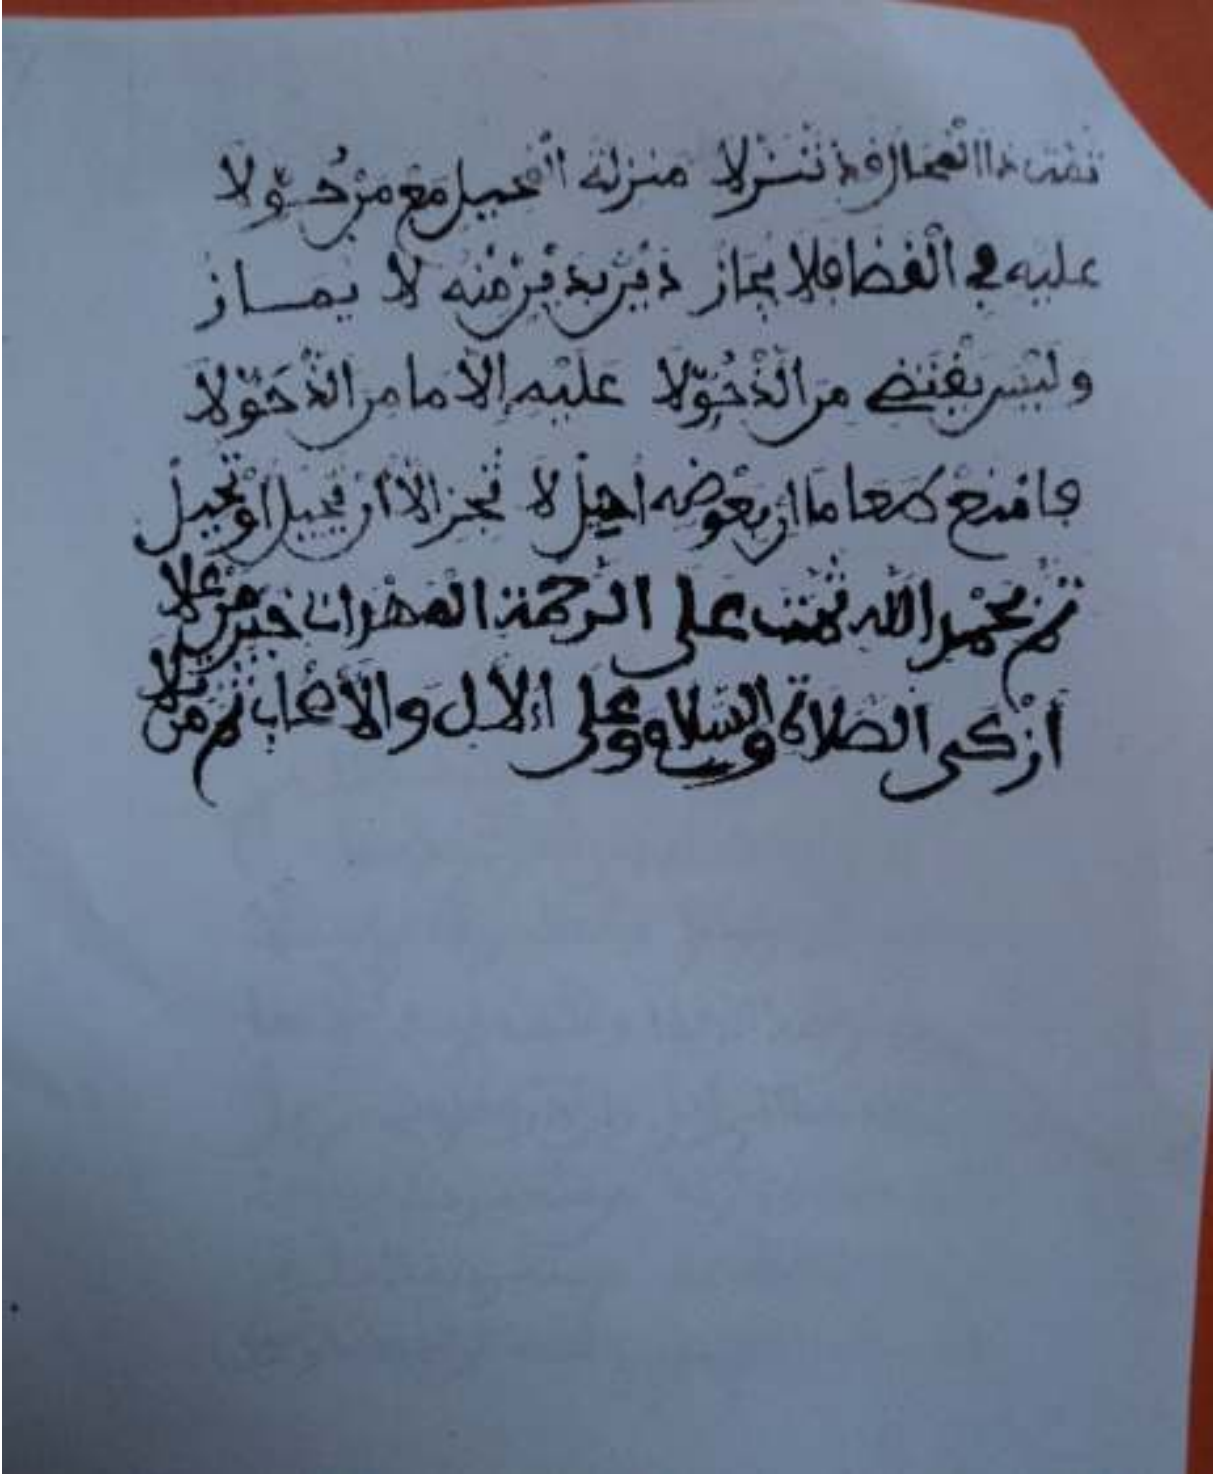 منزلة الحميل مع من حولا
عليه في القضا فلا يجاز دين بدين منه لا يماز
وليس يقتضي من الذ حولا عليه إلا ما من الذ حولا
فامنع طعاما ان بعوضه احيل لا تجز الا ان يحيل او تحيل
تم بحمد الله ثمت على الرحمة المهداة خير من علا
أزكى الصلاة والسلام وعلى الآل والأصحاب ثم من تلا